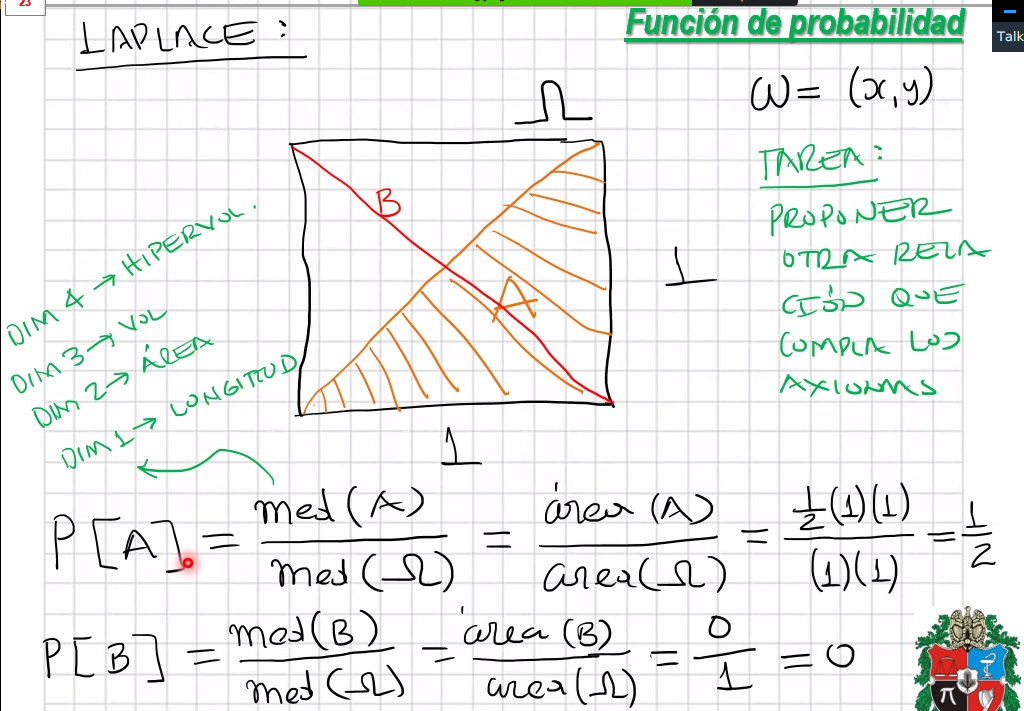 23
Talk
Función de probabilidad
LAPLACE:
Ω
ω = (x,y)
B
A
1
1
TAREA:
PROPONER
OTRA RELA
CIÓN QUE
CUMPLA LOS
AXIOMAS
DIM 4 → HIPERVOL.
DIM 3 → VOL
DIM 2 → ÁREA
DIM 1 → LONGITUD
P[A] = med(A)/med(Ω) = área(A)/area(Ω) = ½(1)(1)/(1)(1) = 1/2
P[B] = med(B)/med(Ω) = área(B)/area(Ω) = 0/1 = 0
π